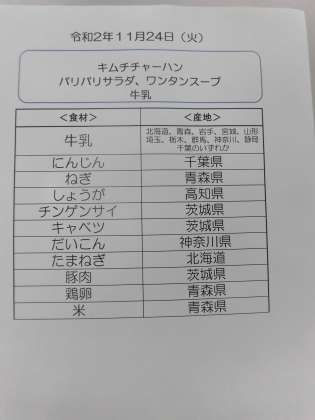 令和2年11月24日（火）
キムチチャーハン
パリパリサラダ、ワンタンスープ
牛乳
＜食材＞ ＜産地＞
牛乳 北海道、青森、岩手、宮城、山形
埼玉、栃木、群馬、神奈川、静岡
千葉のいずれか
にんじん 千葉県
ねぎ 青森県
しょうが 高知県
チンゲンサイ 茨城県
キャベツ 茨城県
だいこん 神奈川県
たまねぎ 北海道
豚肉 茨城県
鶏卵 青森県
米 青森県